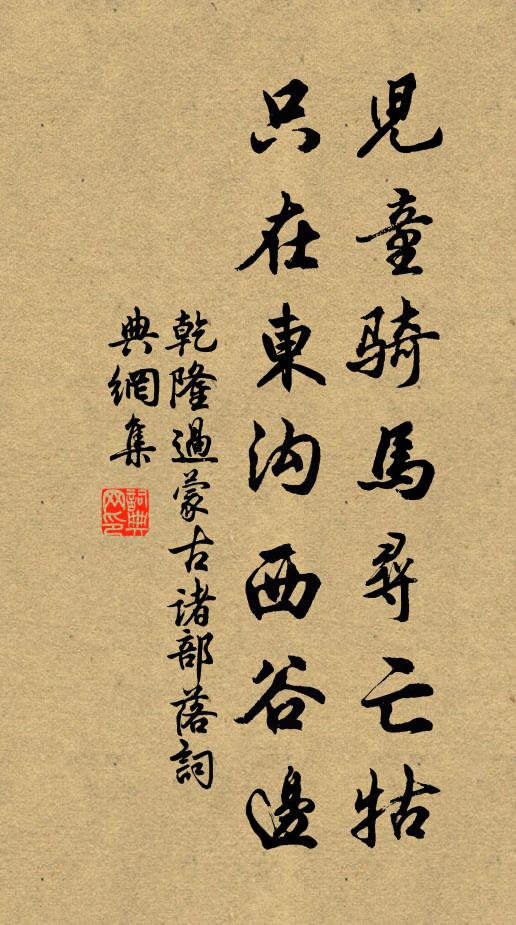 兒童騎馬尋亡牯
只在東沟西谷邊
乾隆過蒙古诸部落詞
典網集
詞典网印